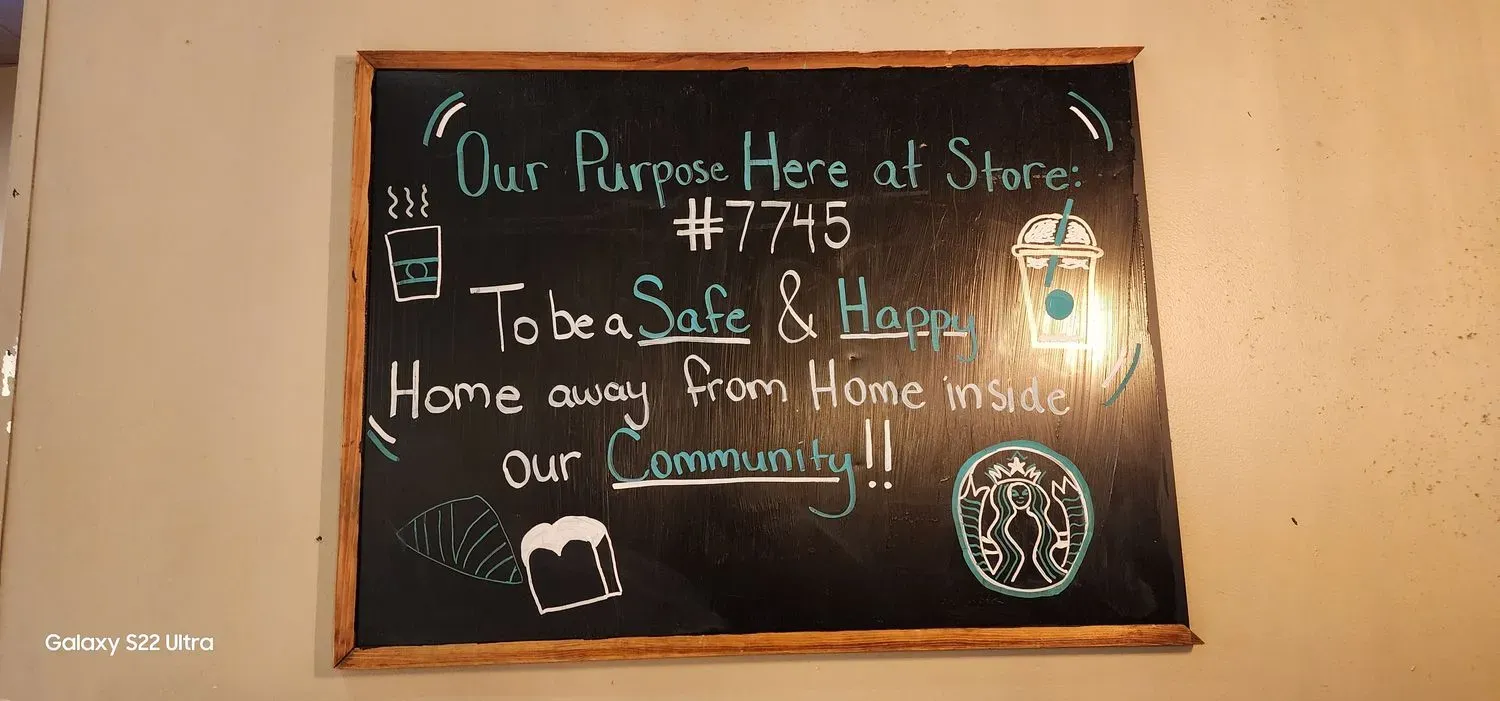 Our Purpose Here at Store:
#7745
To be a Safe & Happy
Home away from Home inside
our Community!!
Galaxy S22 Ultra